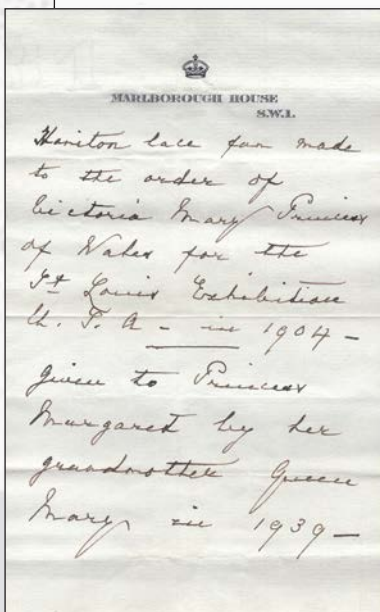 MARLBOROUGH HOUSE
S.W.1.
Honiton lace fan made
to the order of
Victoria Mary Princess
of Wales for the
St Louis Exhibition
U. S. A - in 1904 -
given to Princess
Margaret by her
grandmother Queen
Mary in 1939 -